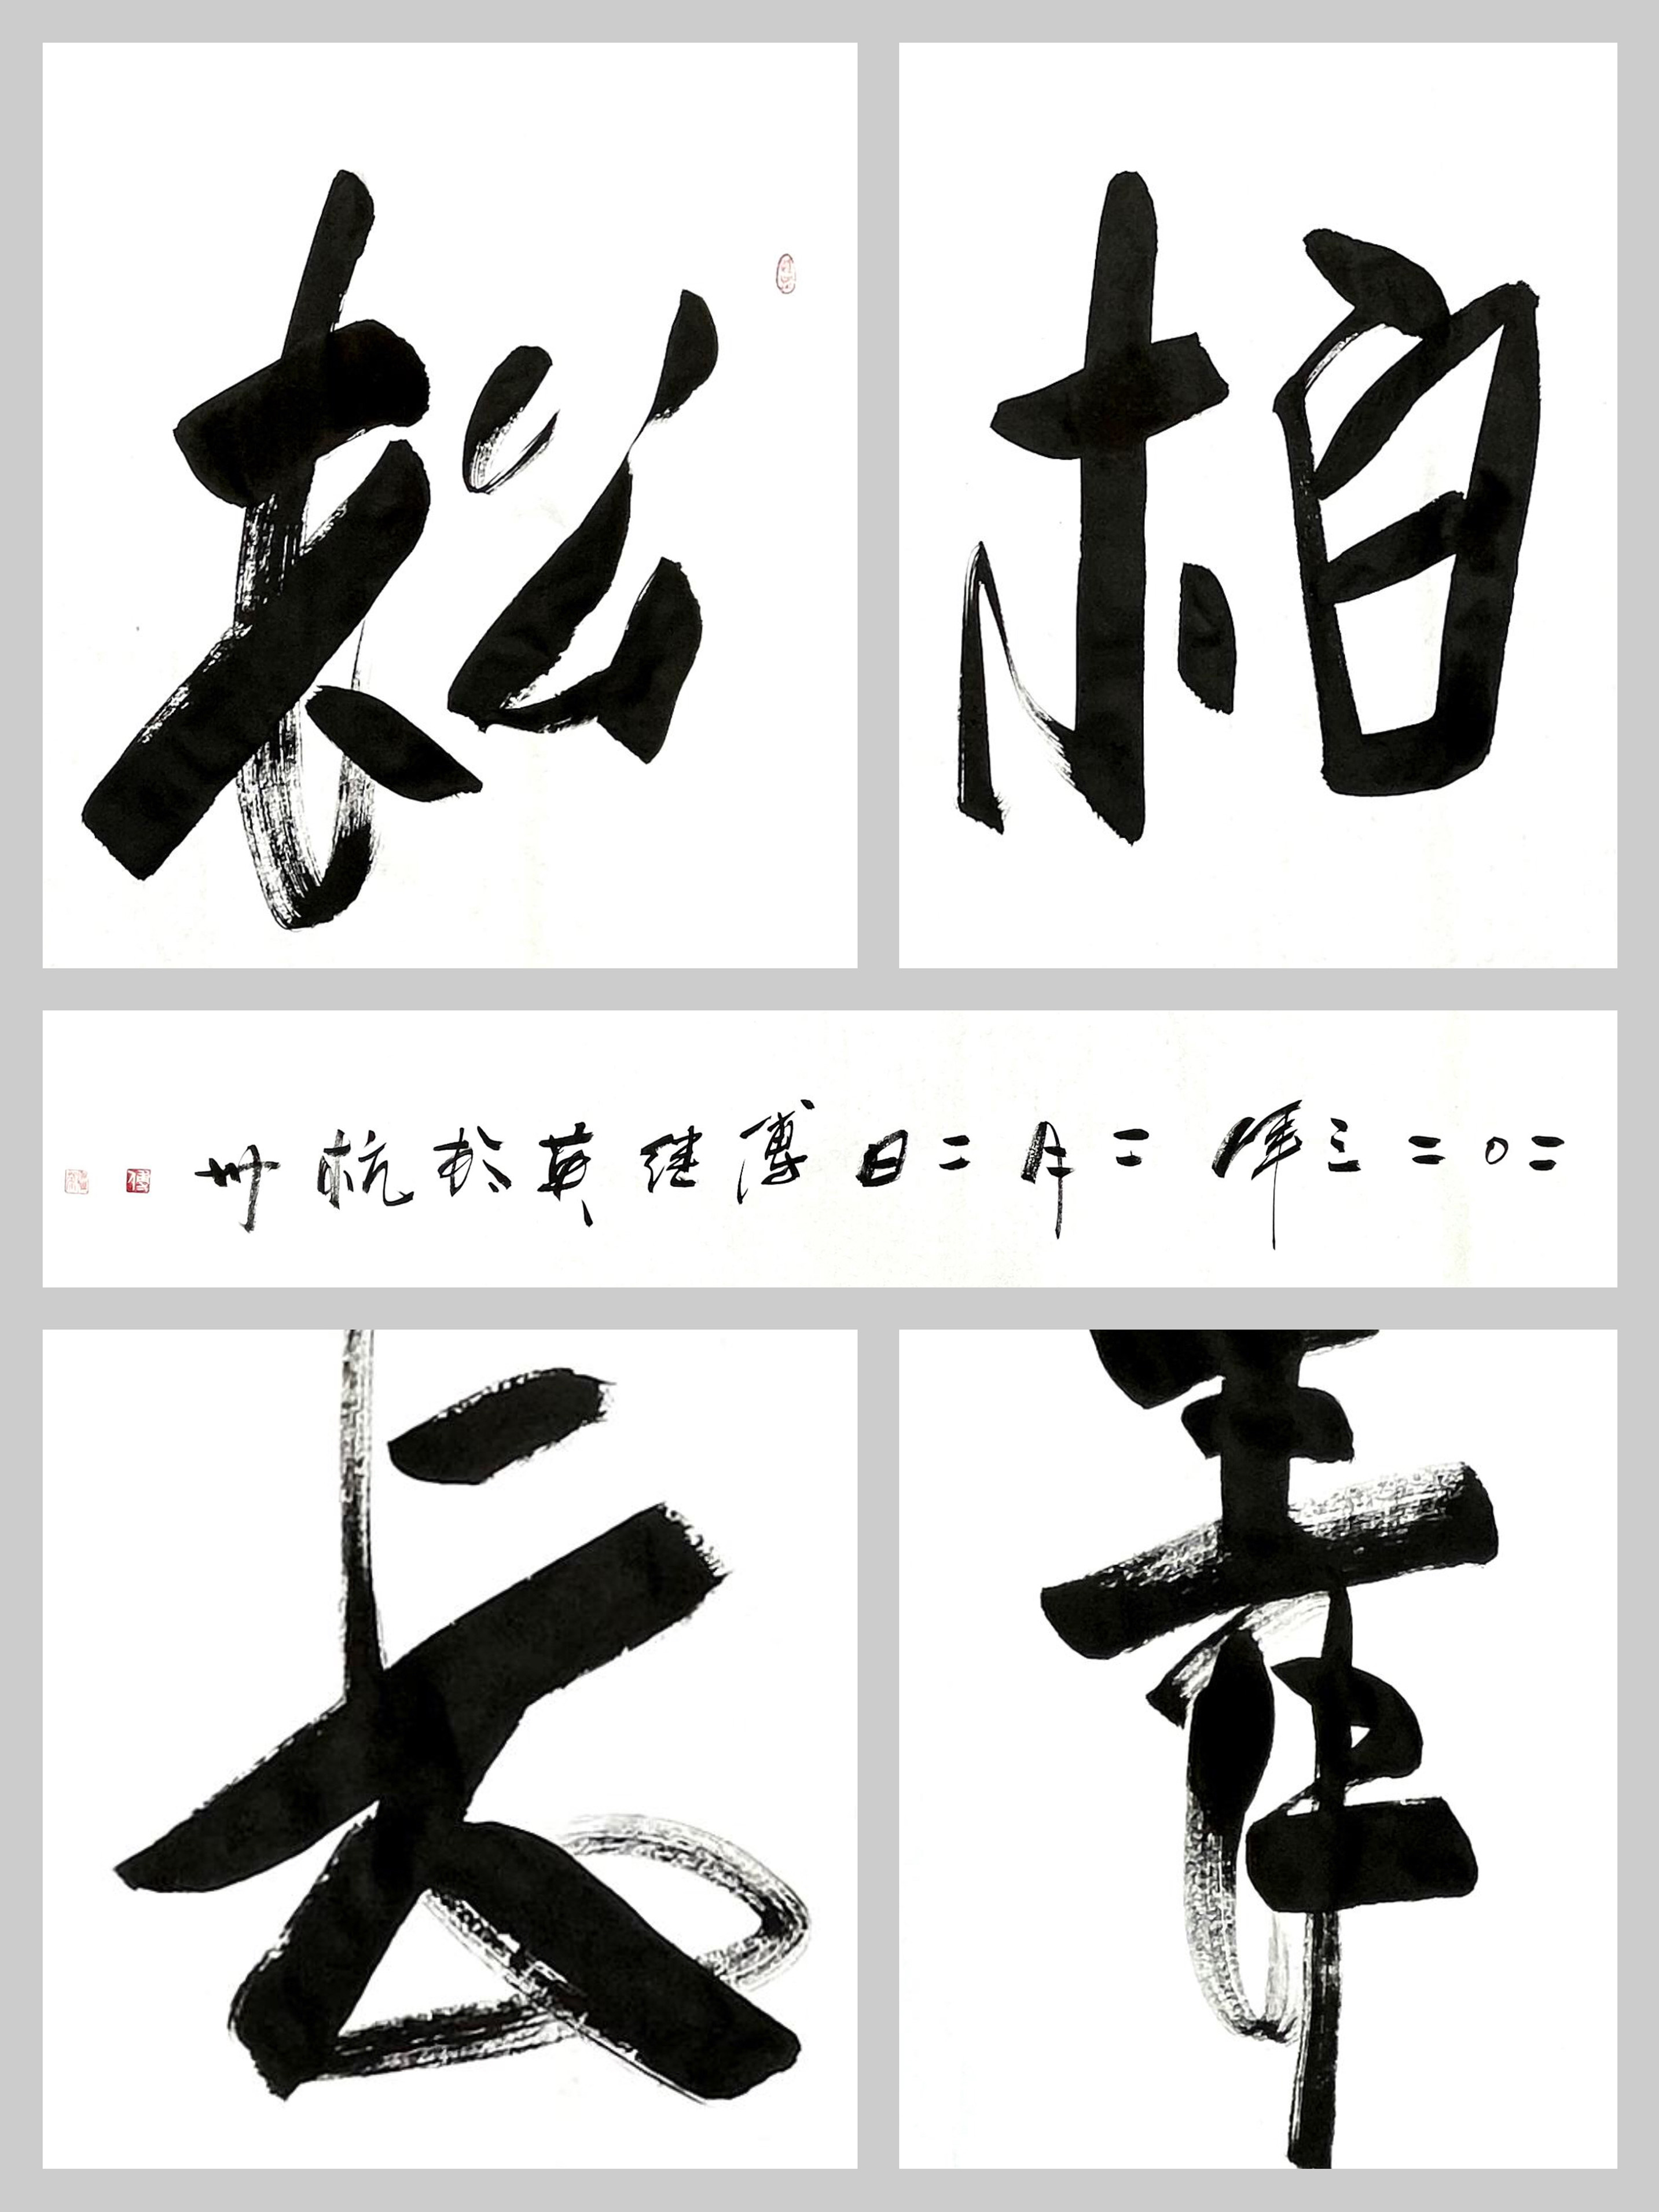 松
柏
二〇二三年二月二日傅继英於杭州